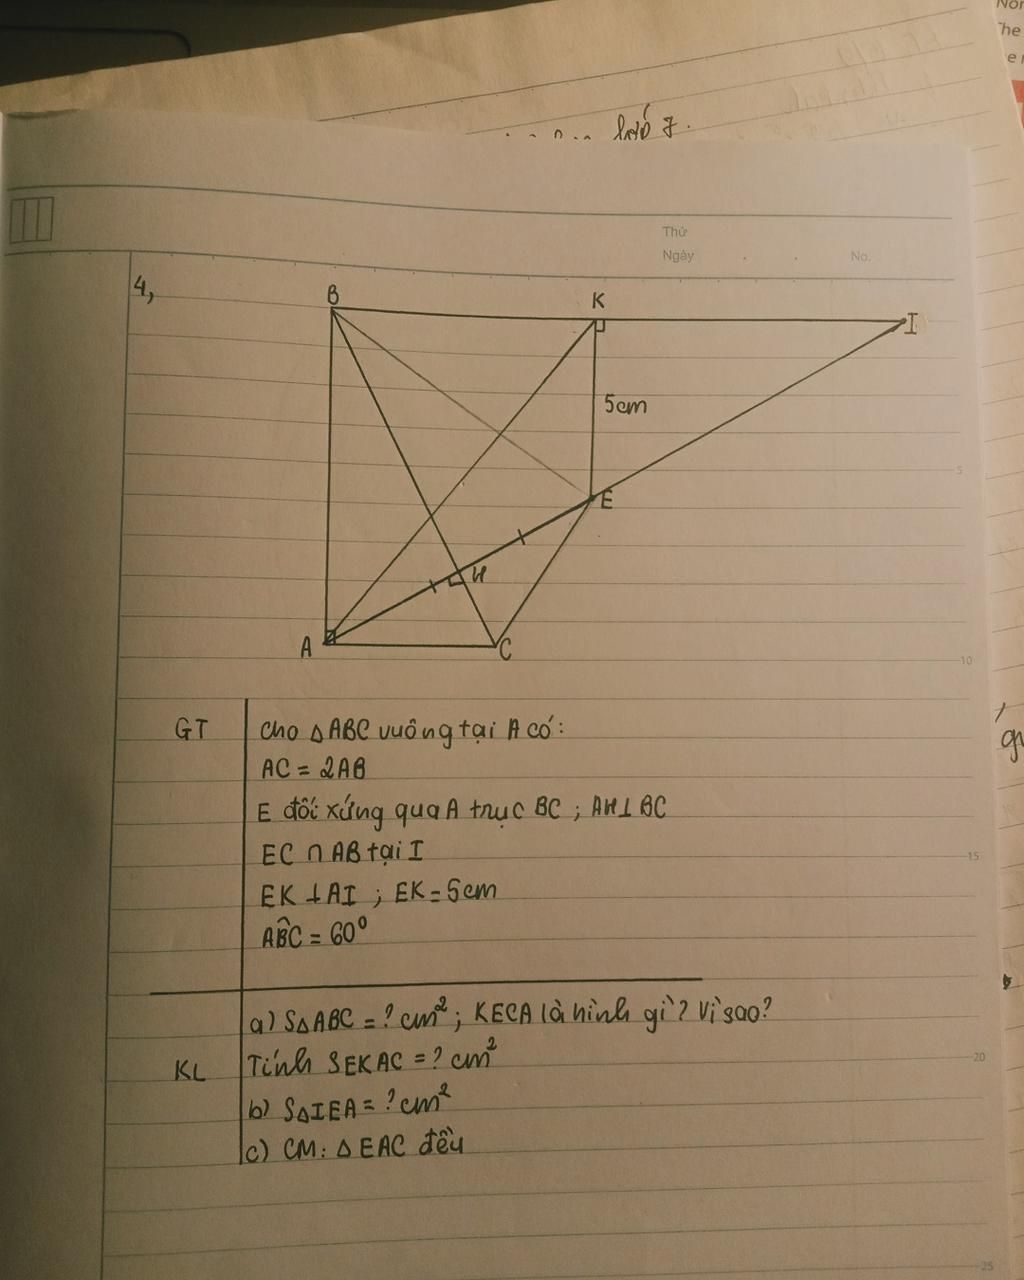 Nor
The
e r
lớp 7.
Thứ
Ngày . . No.
4,
B
K
I
5cm
E
H
A
C
5
10
15
20
25
GT
Cho △ABC vuông tại A có:
AC = 2AB
E đối xứng qua A trục BC ; AH⊥BC
EC ∩ AB tại I
EK ⊥AI ; EK = 5cm
ABC = 60⁰
a) S△ABC = ? cm²; KECA là hình gì? Vì sao?
KL
Tính SEKAC = ? cm²
b) S△IEA = ? cm²
c) CM: △ EAC đều